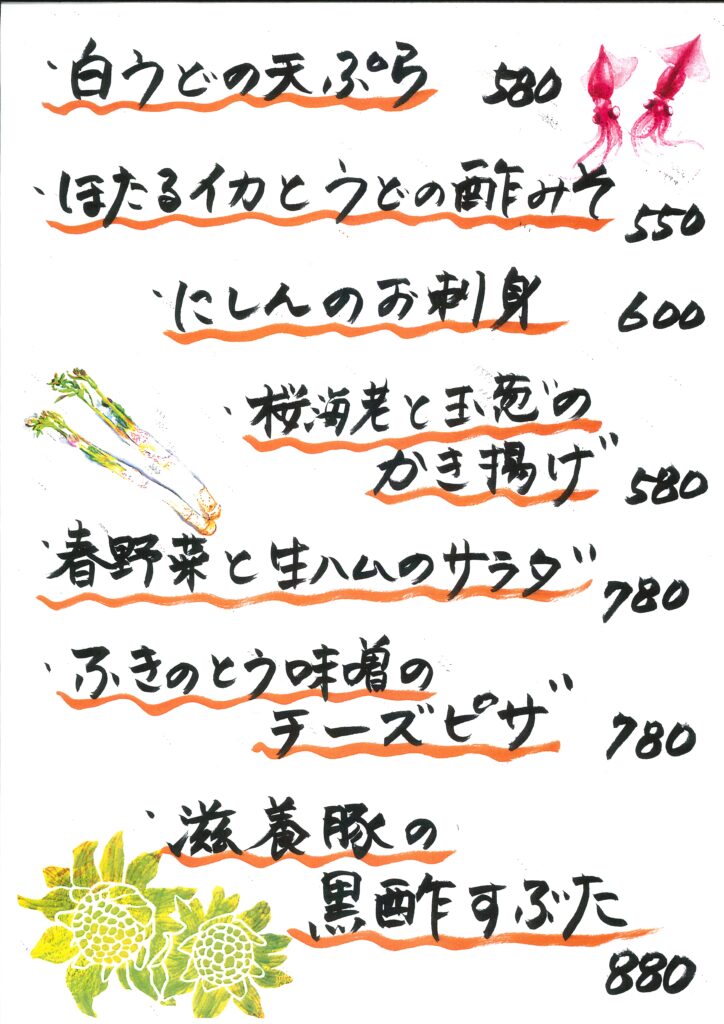 、白うどの天ぷら 580
、ほたるイカとうどの酢みそ 550
、にしんのお刺身 600
、桜海老と玉葱の
かき揚げ 580
、春野菜と生ハムのサラダ 780
、ふきのとう味噌の
チーズピザ 780
、滋養豚の
黒酢すぶた
880